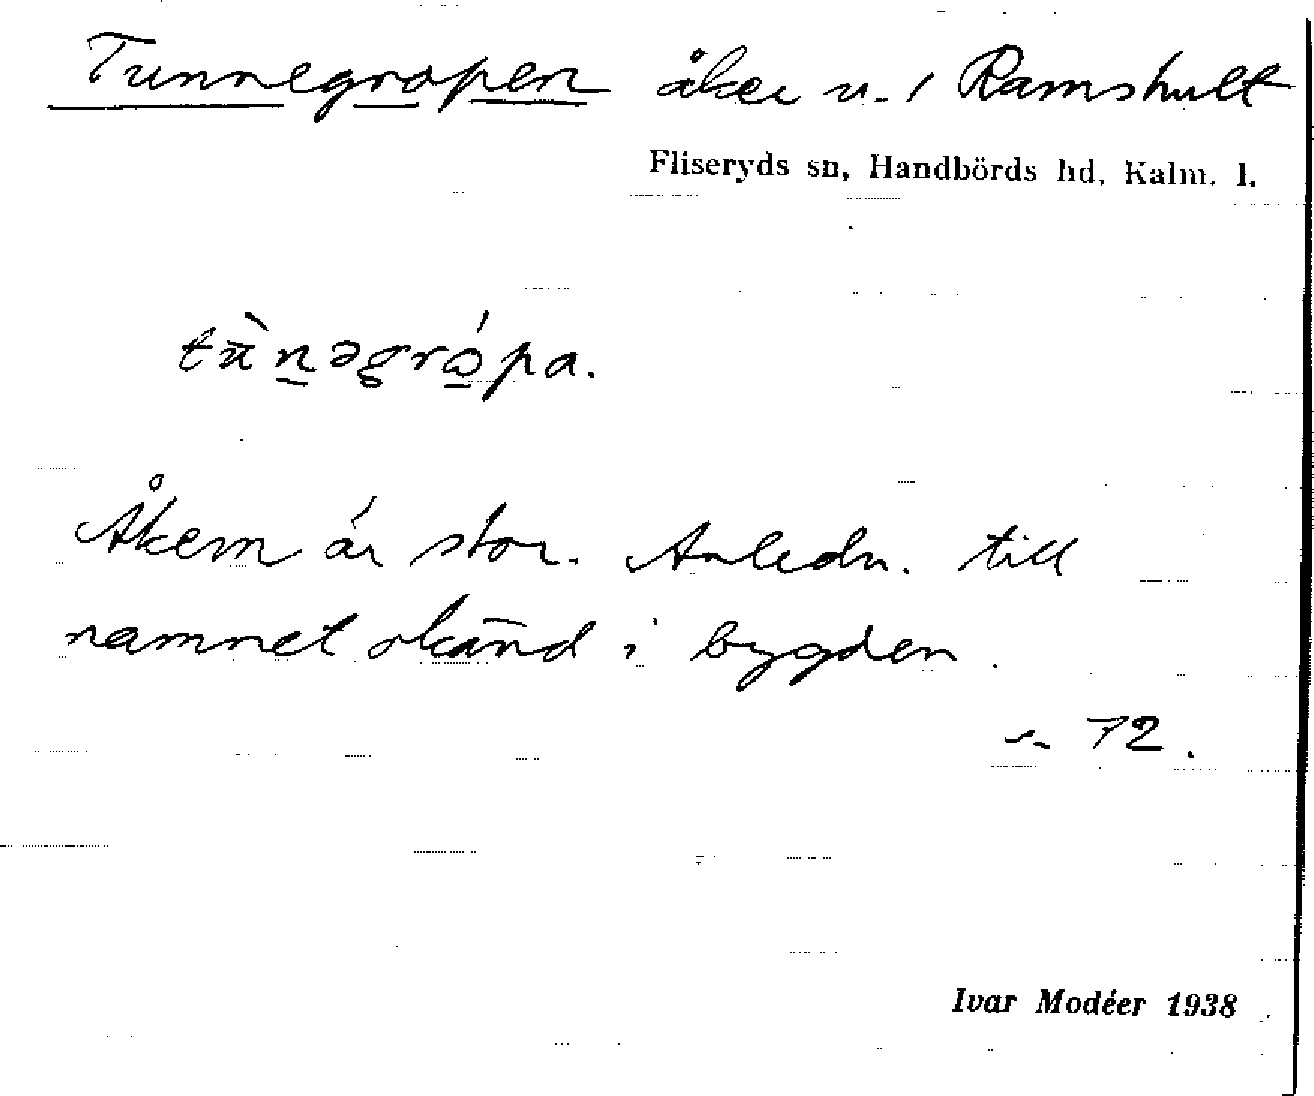 Tunnegropen åker u. / Ramshult
Fliseryds sn, Handbörds hd, Kalm. l.
Åkern är stor. Anledn. till
namnet okänd i bygden.
72.
Ivar Modéer 1938